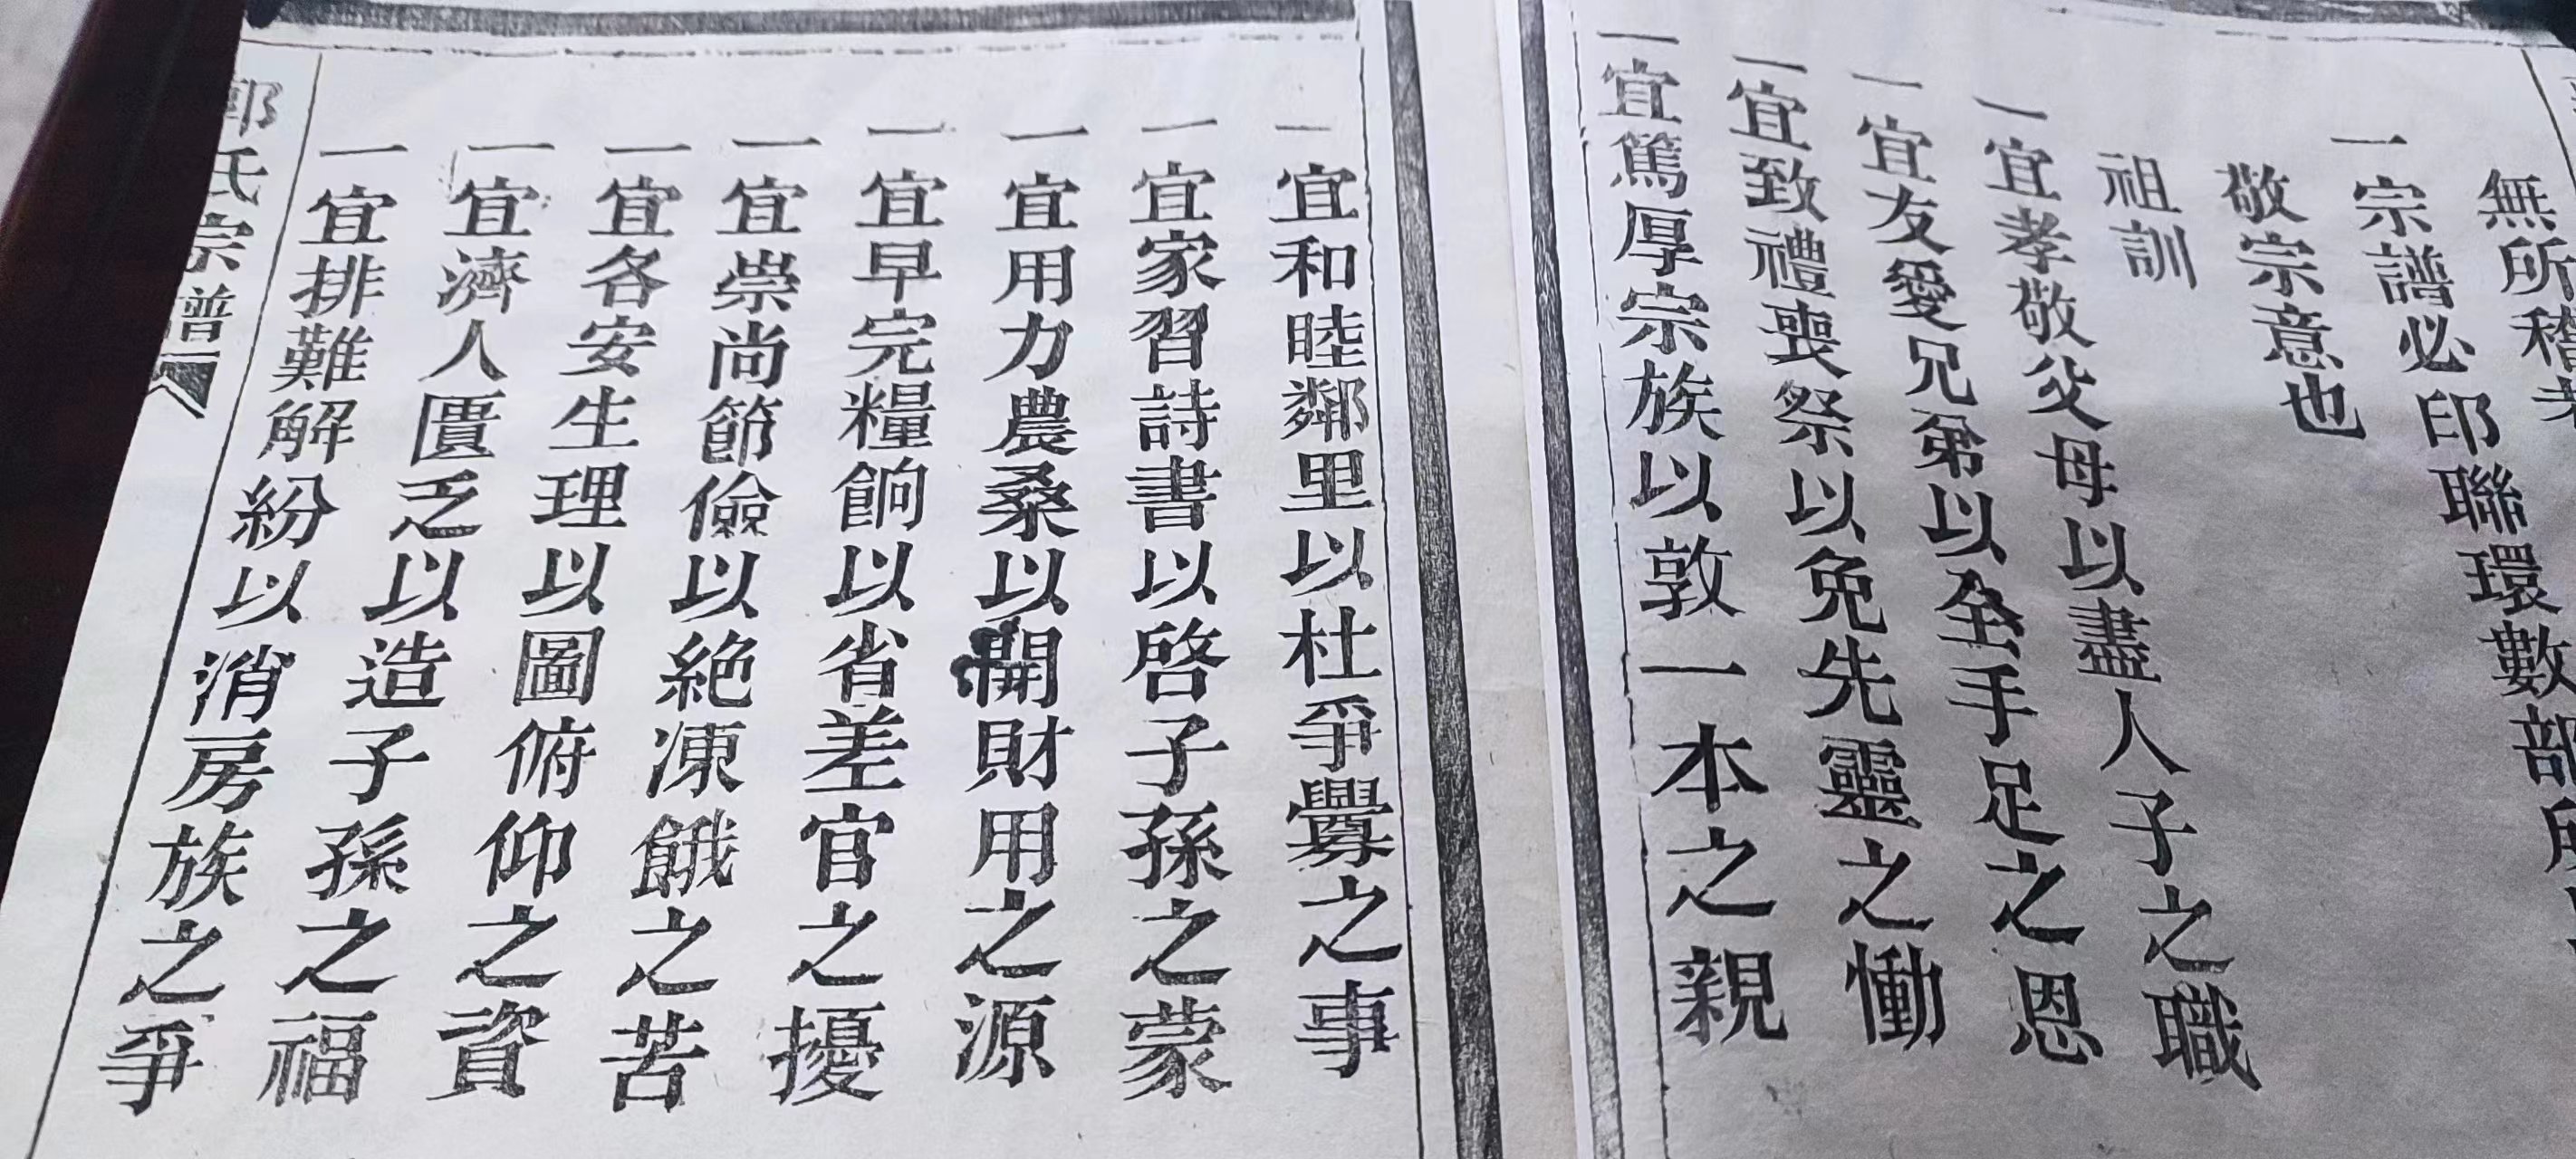 無所稽考
一宗譜必印聯環數部
敬宗意也
祖訓
一宜孝敬父母以盡人子之職
一宜友愛兄弟以全手足之恩
一宜致禮喪祭以免先靈之慟
一宜篤厚宗族以敦一本之親
一宜和睦鄰里以杜爭釁之事
一宜家習詩書以啓子孫之蒙
一宜用力農桑以開財用之源
一宜早完糧餉以省差官之擾
一宜崇尚節儉以絕凍餓之苦
一宜各安生理以圖俯仰之資
一宜濟人匱乏以造子孫之福
一宜排難解紛以消房族之爭
郭氏宗譜